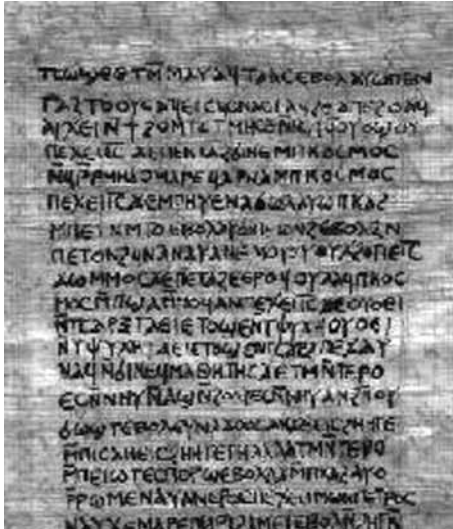 ⲧⲙ̅ⲙⲁⲩ ⲁϥⲧⲁⲁⲥ ⲉⲃⲟⲗ ⲁⲩⲱ ⲡⲉⲛ
ⲧⲁϩⲧⲟⲟⲩⲥ ⲁϥⲉⲓ
ⲁⲣⲭⲉⲓ ⲛ̅ϯ ϩⲟⲙⲧ
ⲡⲉϫⲉ ⲓ̅ⲥ̅ ϫⲉ ⲡⲉⲛⲧⲁϩϭⲓⲛⲉ ⲙ̅ⲡⲕⲟⲥⲙⲟⲥ
ⲛϥⲣ̅ ⲣⲙ̅ⲙⲁⲟ ⲙⲁⲣⲉϥⲁⲣⲛⲁ ⲙⲡⲕⲟⲥⲙⲟⲥ
ⲡⲉϫⲉ ⲓ̅ⲥ̅ ϫⲉ ⲙⲡⲏⲩⲉ ⲛⲁϭⲱⲗ ⲁⲩⲱ ⲡⲕⲁϩ
ⲙ̅ⲡⲉⲧⲛ̅ⲙⲧⲟ ⲉⲃⲟⲗ ⲁⲩⲱ ⲡⲉⲧⲟⲛϩ ⲉⲃⲟⲗ ϩⲛ̅
ⲡⲉⲧⲟⲛϩ ϥⲛⲁⲛⲁⲩ ⲁⲛ ⲉⲙⲟⲩ
ϫⲱ ⲙ̅ⲙⲟⲥ ϫⲉ ⲡⲉⲧⲁϩⲉ ⲉⲣⲟϥ ⲟⲩⲁⲁϥ ⲡⲕⲟⲥ
ⲙⲟⲥ ⲙ̅ⲡϣⲁ ⲙ̅ⲙⲟϥ ⲁⲛ ⲡⲉϫⲉ ⲓ̅ⲥ̅ ϫⲉ ⲟⲩⲟⲉⲓ
ⲛ̅ⲧⲥⲁⲣⲝ ⲧⲁⲉⲓ ⲉⲧⲟϣⲉ ⲛⲧⲯⲩⲭⲏ ⲟⲩⲟⲉⲓ
ⲛⲧⲯⲩⲭⲏ ⲧⲁⲉⲓ ⲉⲧⲟϣⲉ ⲛⲧⲥⲁⲣⲝ ⲡⲉϫⲁⲩ
ⲛⲁϥ ⲛϭⲓ ⲛⲉϥⲙⲁⲑⲏⲧⲏⲥ ϫⲉ ⲧⲙⲛ̅ⲧⲉⲣⲟ
ⲉⲥⲛ̅ⲛⲏⲩ ⲛ̅ⲁϣ ⲛ̅ϩⲟⲟⲩ ⲉⲥⲛ̅ⲛⲏⲩ ⲁⲛ ϩⲛ ⲟⲩ
ϭⲱϣⲧ ⲉⲃⲟⲗ ⲉⲩⲛⲁϫⲟⲟⲥ ⲁⲛ ϫⲉ ⲉⲓⲥ ϩⲏⲏⲧⲉ
ⲙ̅ⲡⲓⲥⲁ ⲏ ⲉⲓⲥ ϩⲏⲏⲧⲉ ⲧⲏ ⲁⲗⲗⲁ ⲧⲙⲛ̅ⲧⲉⲣⲟ
ⲙ̅ⲡⲉⲓⲱⲧ ⲉⲥⲡⲟⲣϣ ⲉⲃⲟⲗ ϩⲓϫⲙ ⲡⲕⲁϩ ⲁⲩⲱ
ⲣ̅ⲣⲱⲙⲉ ⲛⲁⲩ ⲁⲛ ⲉⲣⲟⲥ ⲡⲉϫⲉ ⲥⲓⲙⲱⲛ ⲡⲉⲧⲣⲟⲥ
ⲛⲁⲩ ϫⲉ ⲙⲁⲣⲉ ⲙⲁⲣⲓϩⲁⲙ ⲉⲓ ⲉⲃⲟⲗ ⲛ̅ϩⲏⲧⲛ̅